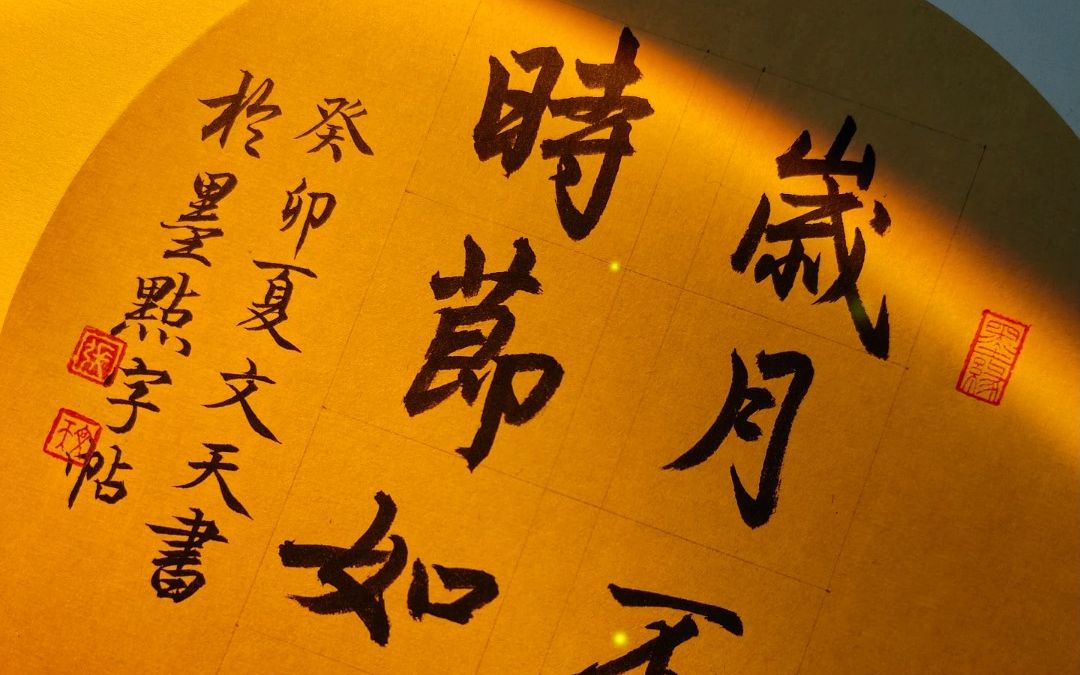 歲月不
時節如
癸卯夏文天書
於墨點字帖